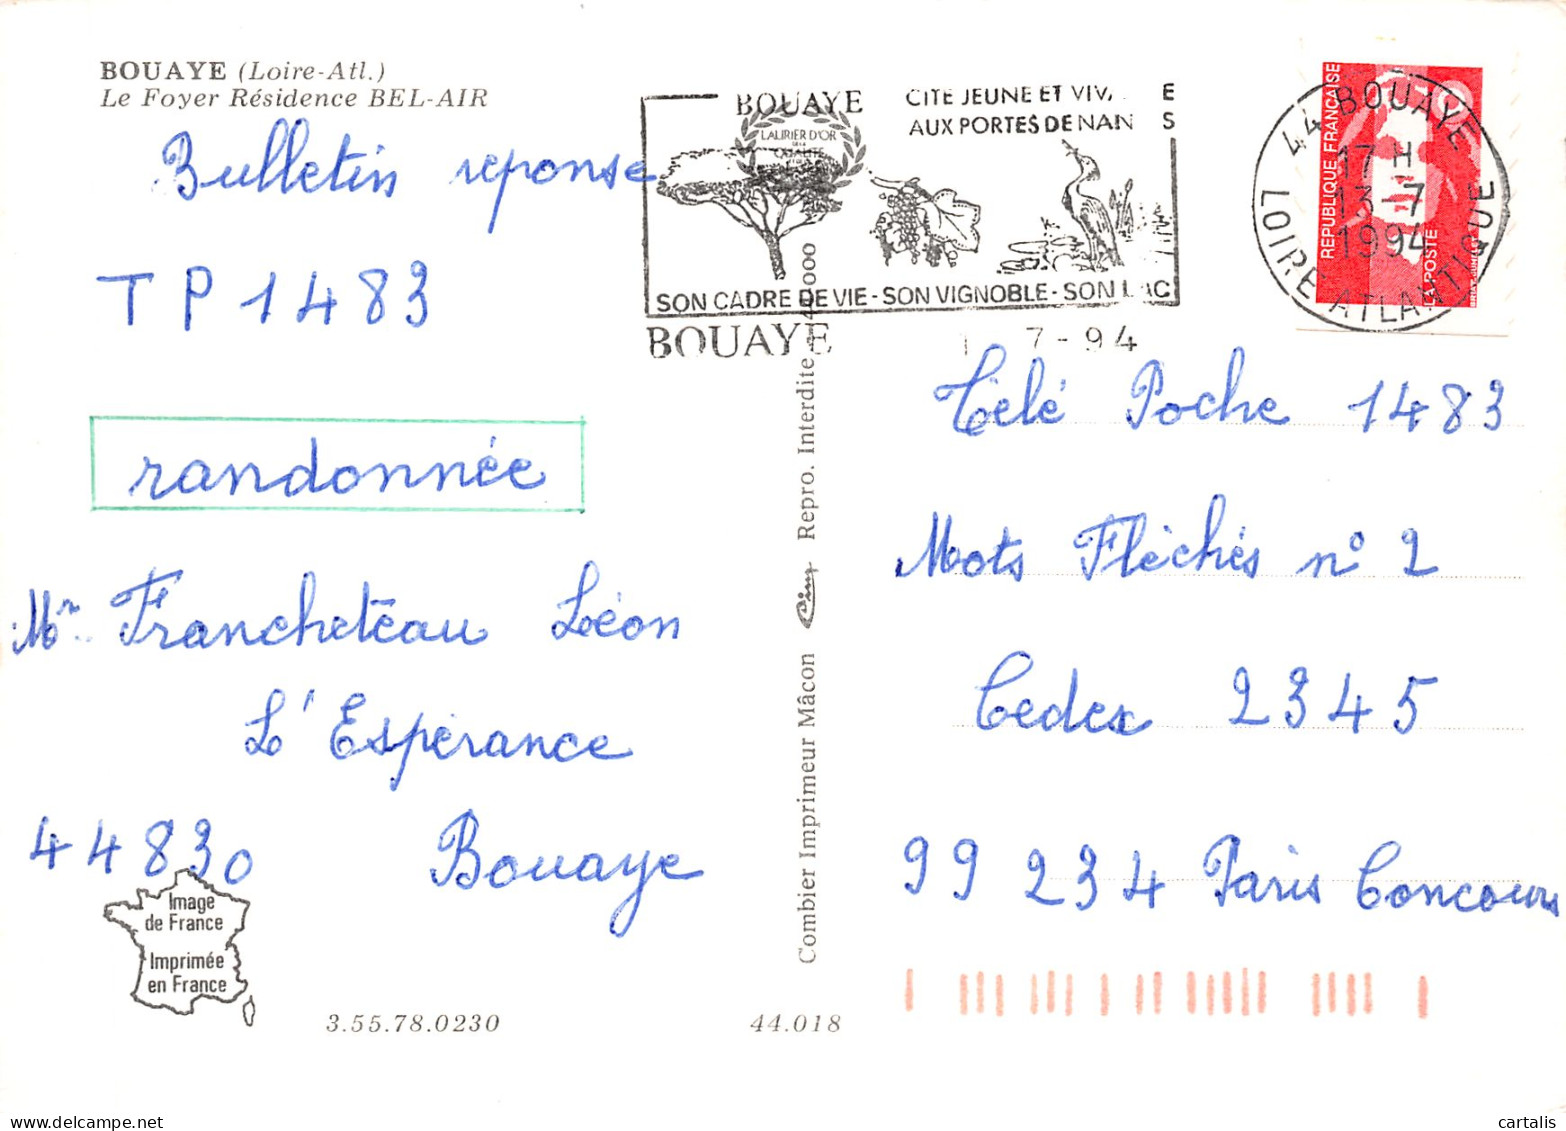 BOUAYE (Loire-Atl.)
Le Foyer Résidence BEL-AIR
Bulletin reponse
TP 1483
randonnée
Mr Francheteau Léon
L'Espérance
44830 Bouaye
Image
de France
Imprimée
en France
3.55.78.0230
44.018
Combier Imprimeur Mâcon Repro. Interdite
BOUAYE
LAURIER D'OR
DE LA
QUALITE
CITE JEUNE ET
AUX PORTES DE
SON CADRE DE VIE - SON VIGNOBLE - SON
BOUAYE
7-94
44 BOUAYE
17 H
13-7
1994
LOIRE ATLANTIQUE
REPUBLIQUE FRANÇAISE
LA POSTE
Télé Poche 1483
Mots Fléchés n° 2
Cedex 2345
99 234 Paris Concours
cartalis
www.delcampe.net